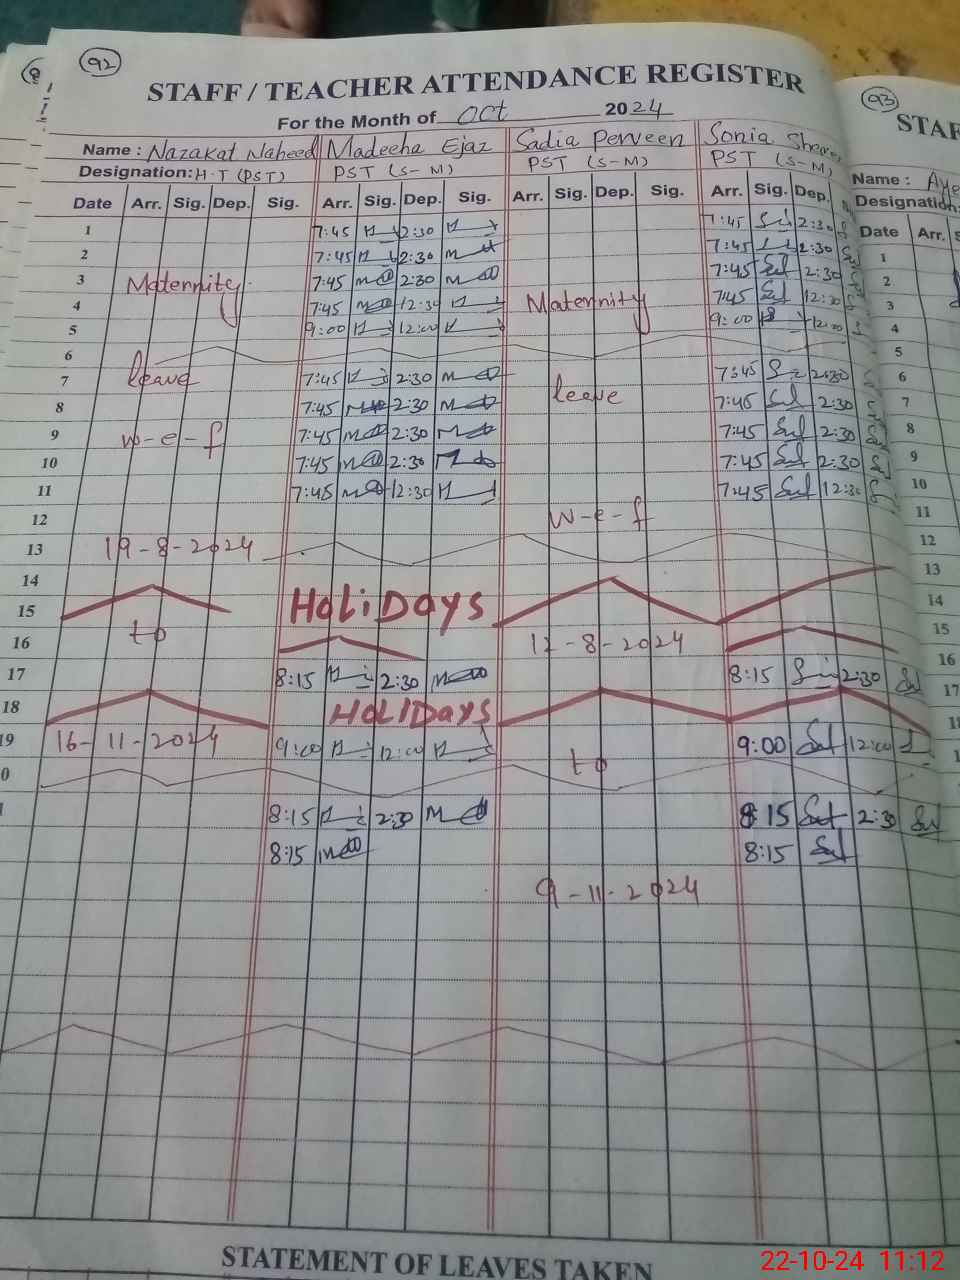 92
STAFF / TEACHER ATTENDANCE REGISTER
For the Month of Oct 2024
Name : Nazakat Naheed Madeeha Ejaz Sadia Perveen Sonia
Designation: H.T (PST) PST (S-M) PST (S-M) PST (S-M)
Date Arr. Sig. Dep. Sig. Arr. Sig. Dep. Sig. Arr. Sig. Dep. Sig. Arr. Sig. Dep.
1 7:45 2:30 7:45 2:30
2 7:45 2:30 7:45 2:30
3 Maternity 7:45 2:30 Maternity 7:45 2:30
4 7:45 12:30 7:45 12:30
5 9:00 12:00 9:00 12:00
6
7 leave 7:45 2:30 leave 7:45 2:30
8 7:45 2:30 7:45 2:30
9 w-e-f 7:45 2:30 7:45 2:30
10 7:45 2:30 7:45 2:30
11 7:45 12:30 7:45 12:30
12 w-e-f
13 19-8-2024
14
15 HOLIDAYS
16 to 12-8-2024
17 8:15 2:30 8:15 2:30
18 HOLIDAYS
19 16-11-2024 9:00 12:00 to 9:00 12:00
8:15 2:30 8:15 2:30
8:15 8:15
9-11-2024
STATEMENT OF LEAVES TAKEN
93
Name :
Designation:
Date Arr.
1
2
3
4
5
6
7
8
9
10
11
12
13
14
15
16
17
22-10-24 11:12